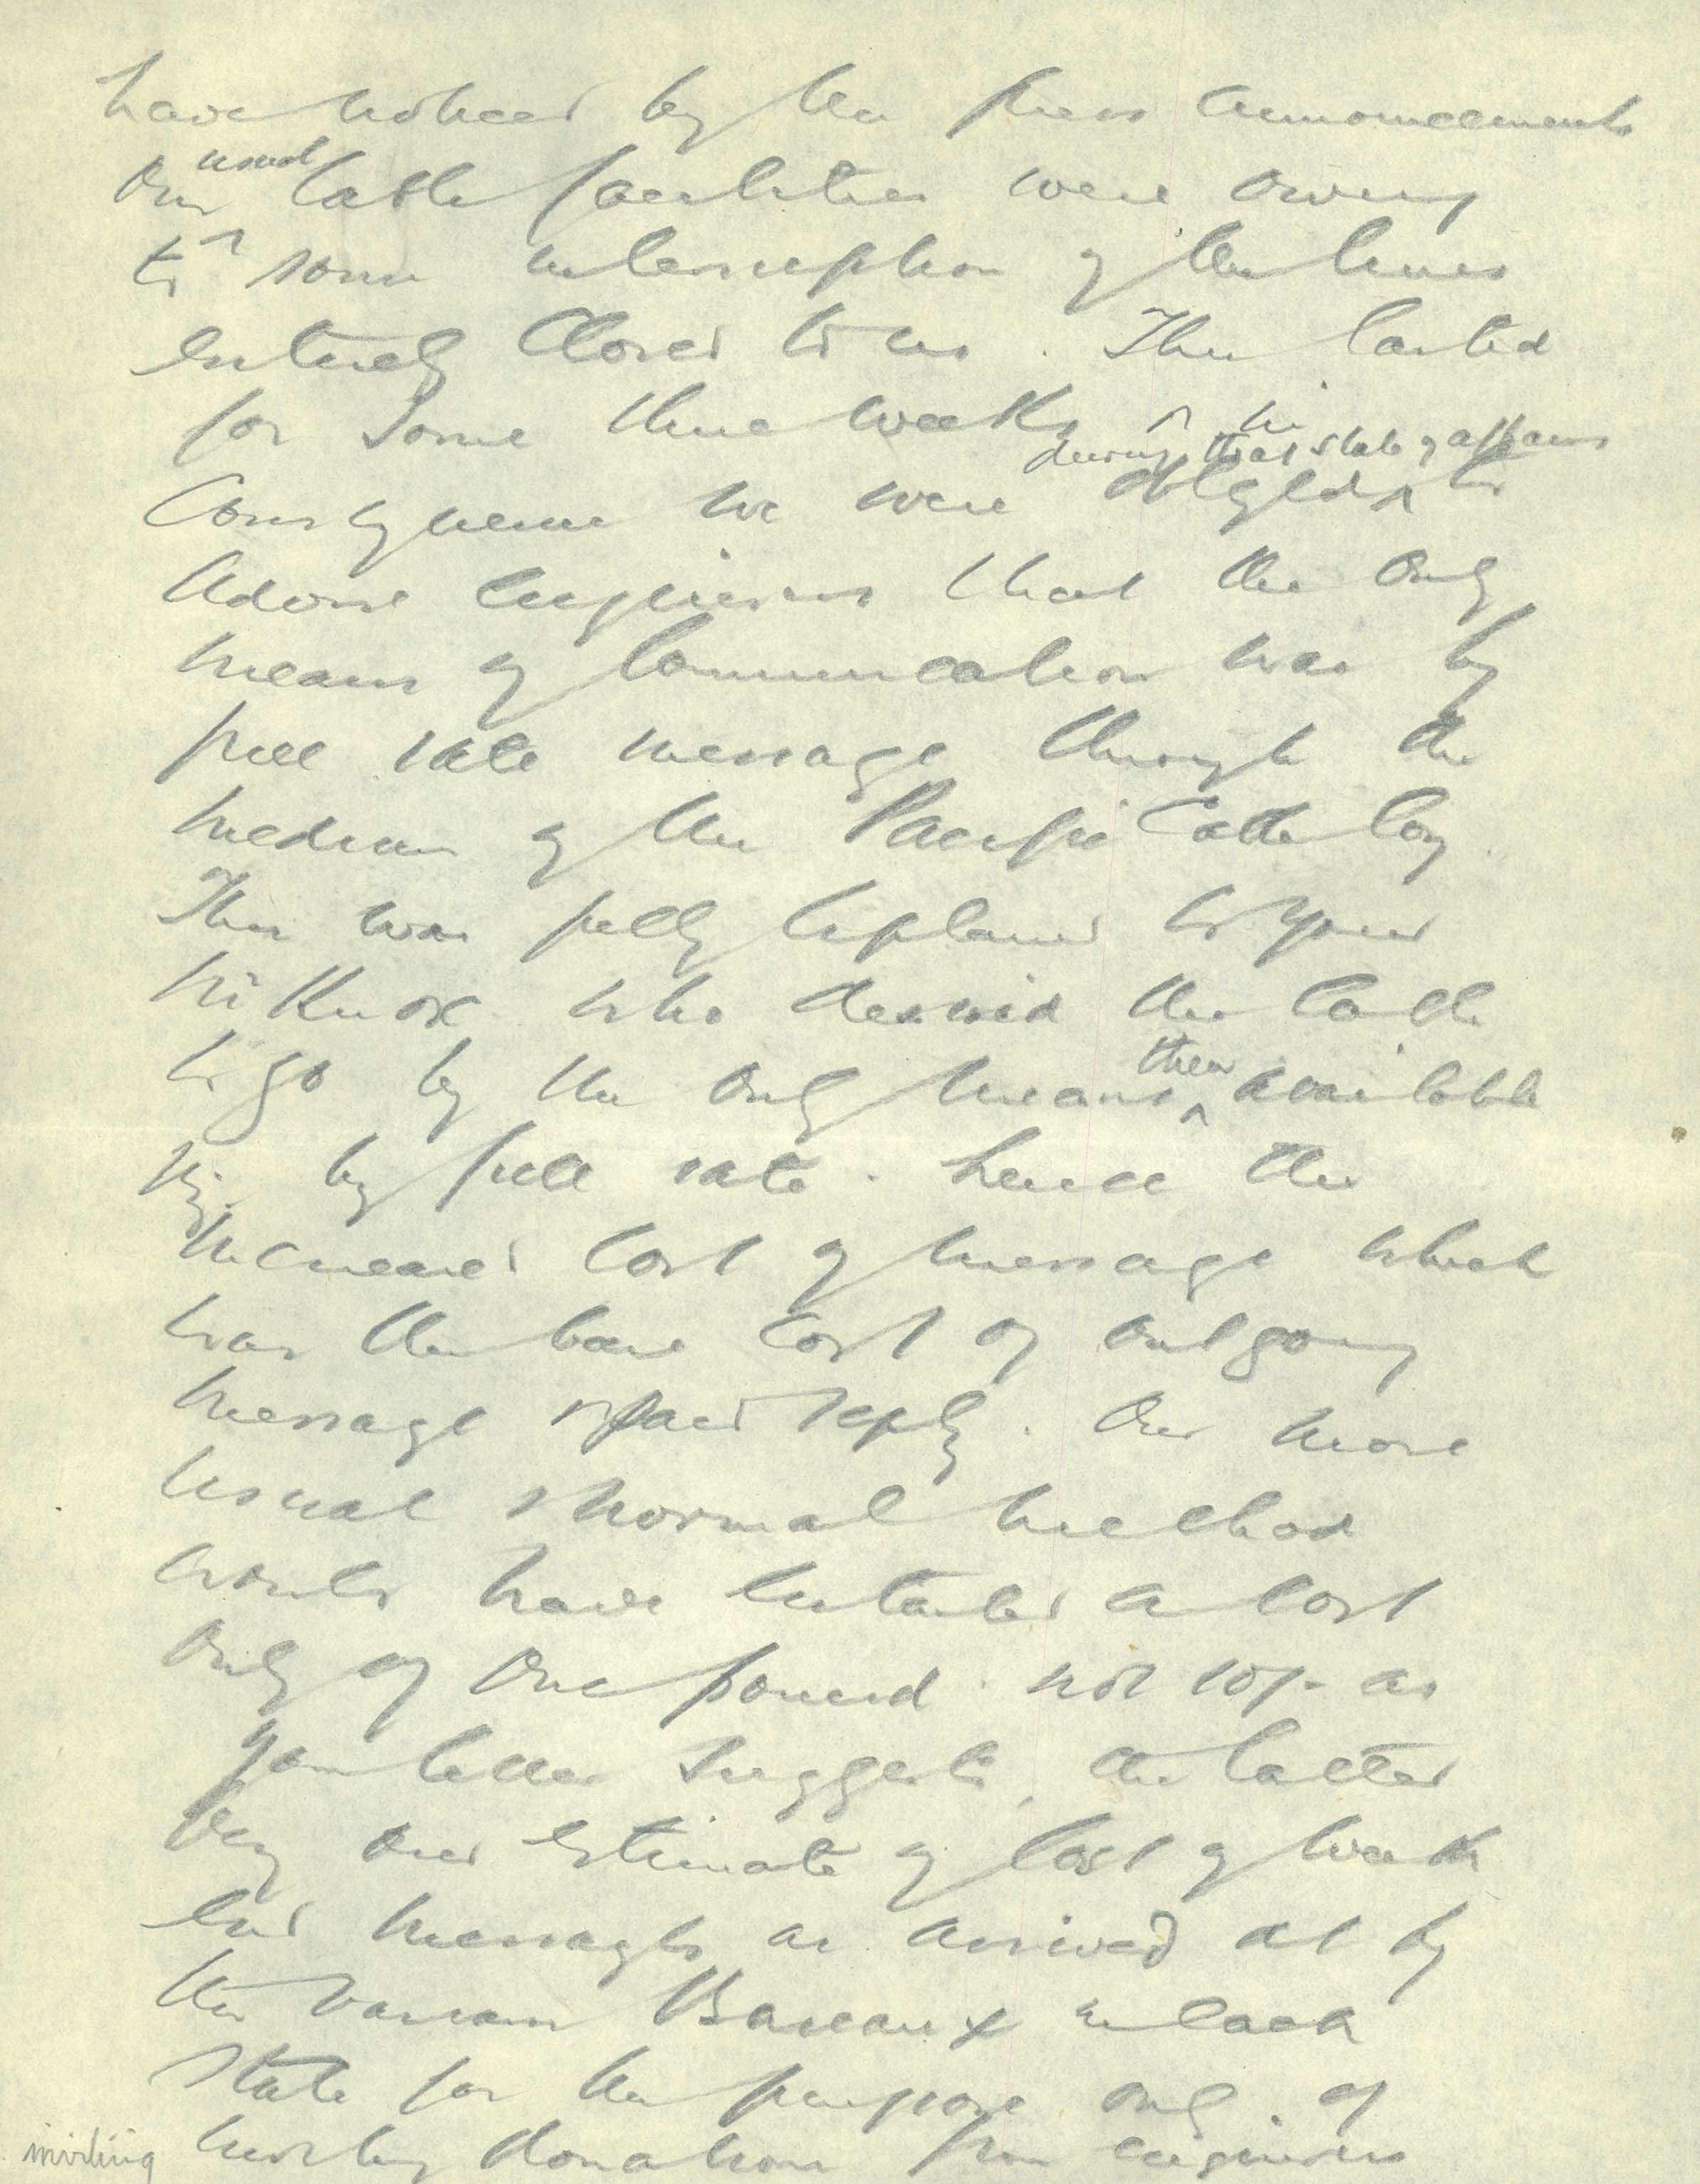 have noticed by the press announcements
our usual cable facilities were owing
to some interruption of the lines
entirely closed to us. This lasted
for some three weeks & in
consequence we were obliged during that state of affairs to
advise enquirers that the only
means of communication was by
full rate message through the
medium of the Pacific Cable Coy.
This was fully explained to your
Mr Knox who desired the cable
to go by the only means then available
viz. by full rate. Hence the
increased cost of message which
was the bare cost of outgoing
message & paid reply. Our more
usual & normal method
would have entailed a cost
only of one pound. not 10/- as
your letter suggests, the latter
being our estimate of cost of week
end messages as arrived at by
the various Bureaux in each
State for the purpose only of
inviting donations from enquirers
inviting